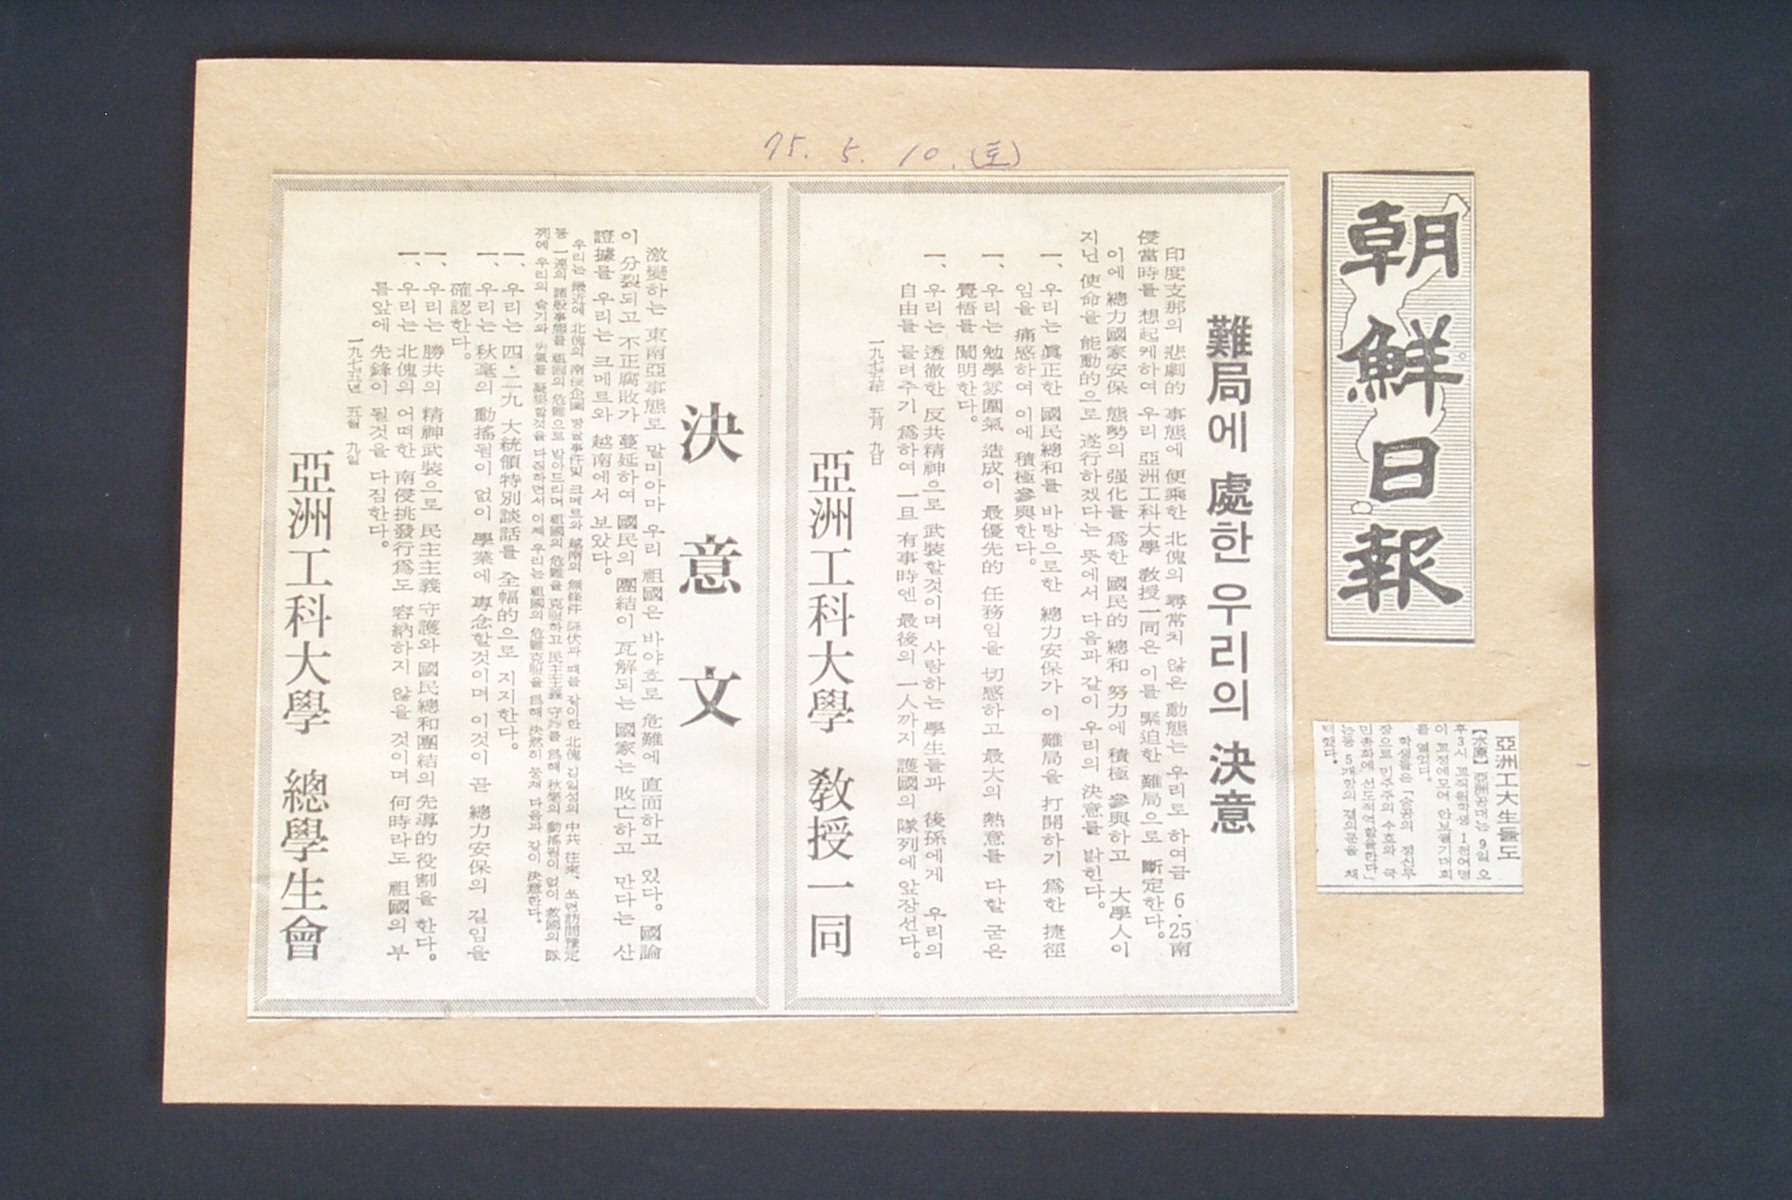 75. 5. 10. (토)
朝鮮日報
亞洲工大生들도
【水原】亞洲工大는 9일 오
후3시 교직원학생 1천여명
이 교정에모여 안보궐기대회
를 열었다.
학생들은 「승공의 정신무
장으로 민주주의 수호와 국
민총화에 선도적역할을한다」
는등 5개항의 결의문을 채
택했다.
難局에 處한 우리의 決意
印度支那의 悲劇的 事態에 便乘한 北傀의 尋常치 않은 動態는 우리로 하여금 6·25南
侵當時를 想起케하여 우리 亞洲工科大學 敎授一同은 이를 緊迫한 難局으로 斷定한다.
이에 總力國家安保 態勢의 强化를 爲한 國民的 總和 努力에 積極 參與하고 大學人이
지닌 使命을 能動的으로 遂行하겠다는 뜻에서 다음과 같이 우리의 決意를 밝힌다.
一、우리는 眞正한 國民總和를 바탕으로한 總力安保가 이 難局을 打開하기 爲한 捷徑
임을 痛感하여 이에 積極參與한다.
一、우리는 勉學雰圍氣 造成이 最優先的 任務임을 切感하고 最大의 熱意를 다할 굳은
覺悟를 闡明한다.
一、우리는 透徹한 反共精神으로 武裝할것이며 사랑하는 學生들과 後孫에게 우리의
自由를 물려주기 爲하여 一旦 有事時엔 最後의 一人까지 護國의 隊列에 앞장선다.
一九七五年 五月 九日
亞洲工科大學 敎授一同
決意文
激變하는 東南亞事態로 말미아마 우리 祖國은 바야흐로 危難에 直面하고 있다。國論
이 分裂되고 不正腐敗가 蔓延하여 國民의 團結이 瓦解되는 國家는 敗亡하고 만다는 산
證據를 우리는 크메르와 越南에서 보았다。
우리는 最近에 北傀의 南侵企圖 땅굴事件및 크메르와 越南의 無條件 降伏과 때를 같이한 北傀 김일성의 中共 往來、쏘련訪問豫定
等 一連의 諸般事態를 祖國의 危難으로 받아드리며 祖國의 危難을 克服하고 民主主義 守護를 爲해 秋毫의 動搖됨이 없이 救國의 隊
列에 우리의 슬기와 勇氣를 凝集할것을 다짐하면서 이제 우리는 祖國의 危難克服을 爲해 決然히 뭉쳐 다음과 같이 決意한다.
一、우리는 四·二九 大統領特別談話를 全幅的으로 지지한다。
一、우리는 秋毫의 動搖됨이 없이 學業에 專念할것이며 이것이 곧 總力安保의 길임을
確認한다。
一、우리는 勝共의 精神武裝으로 民主主義 守護와 國民總和團結의 先導的 役割을 한다。
一、우리는 北傀의 어떠한 南侵挑發行爲도 容納하지 않을 것이며 何時라도 祖國의 부
름앞에 先鋒이 될것을 다짐한다。
一九七五년 五월 九일
亞洲工科大學 總學生會